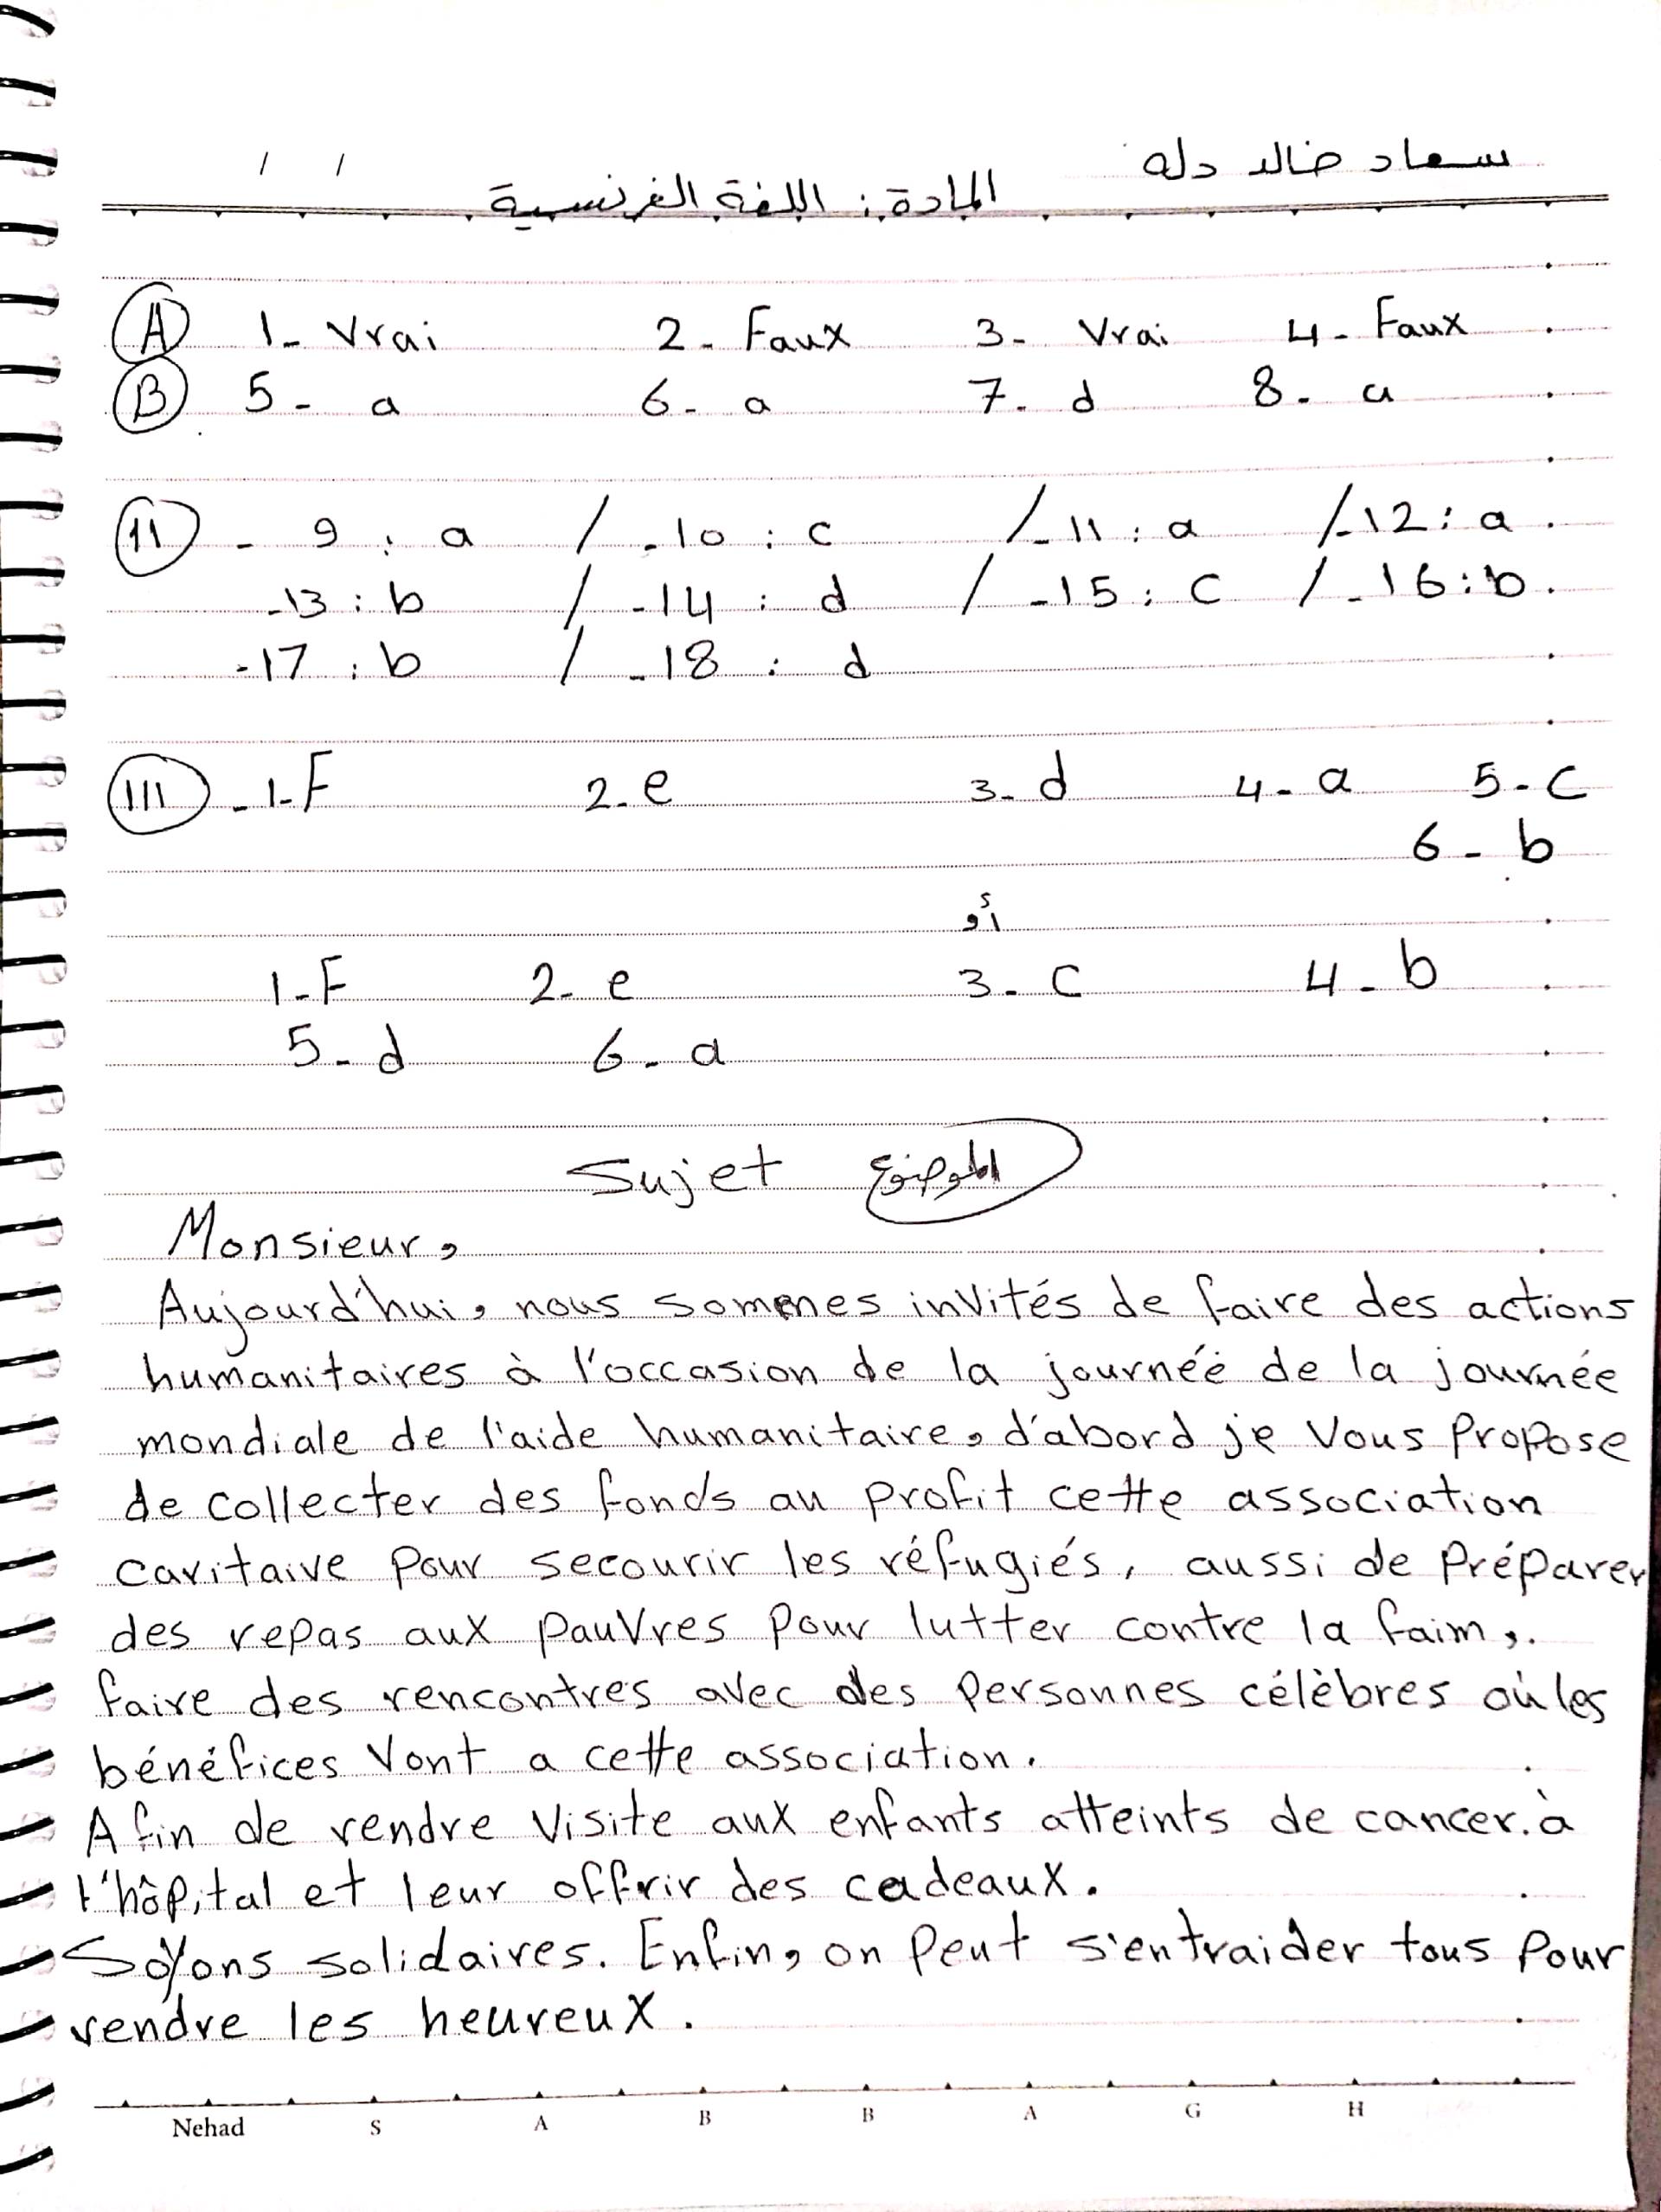 سعاد خالد دله
المادة : اللغة الفرنسية
/ /
A 1- Vrai 2- Faux 3- Vrai 4- Faux
B 5- a 6- a 7- d 8- a
11 - 9 : a / -10 : c / -11 : a / -12 : a
-13 : b / -14 : d / -15 : c / -16 : b
-17 : b / -18 : d
111 -1-F 2-e 3-d 4-a 5-c
6-b
أو
1-F 2-e 3-c 4-b
5-d 6-a
Sujet الموضوع
Monsieur,
Aujourd'hui, nous sommes invités de faire des actions
humanitaires à l'occasion de la journée de la journée
mondiale de l'aide humanitaire, d'abord je vous propose
de collecter des fonds au profit cette association
caritaive pour secourir les réfugiés, aussi de préparer
des repas aux pauvres pour lutter contre la faim,.
faire des rencontres avec des personnes célèbres où les
bénéfices vont a cette association.
Afin de rendre visite aux enfants atteints de cancer.à
l'hôpital et leur offrir des cadeaux.
Soyons solidaires. Enfin, on peut s'entraider tous pour
rendre les heureux.
Nehad S A B B A G H